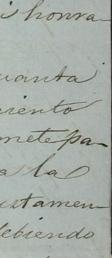 i honra-
uanta
miento
mete pa-
a la
ustamen-
debiendo